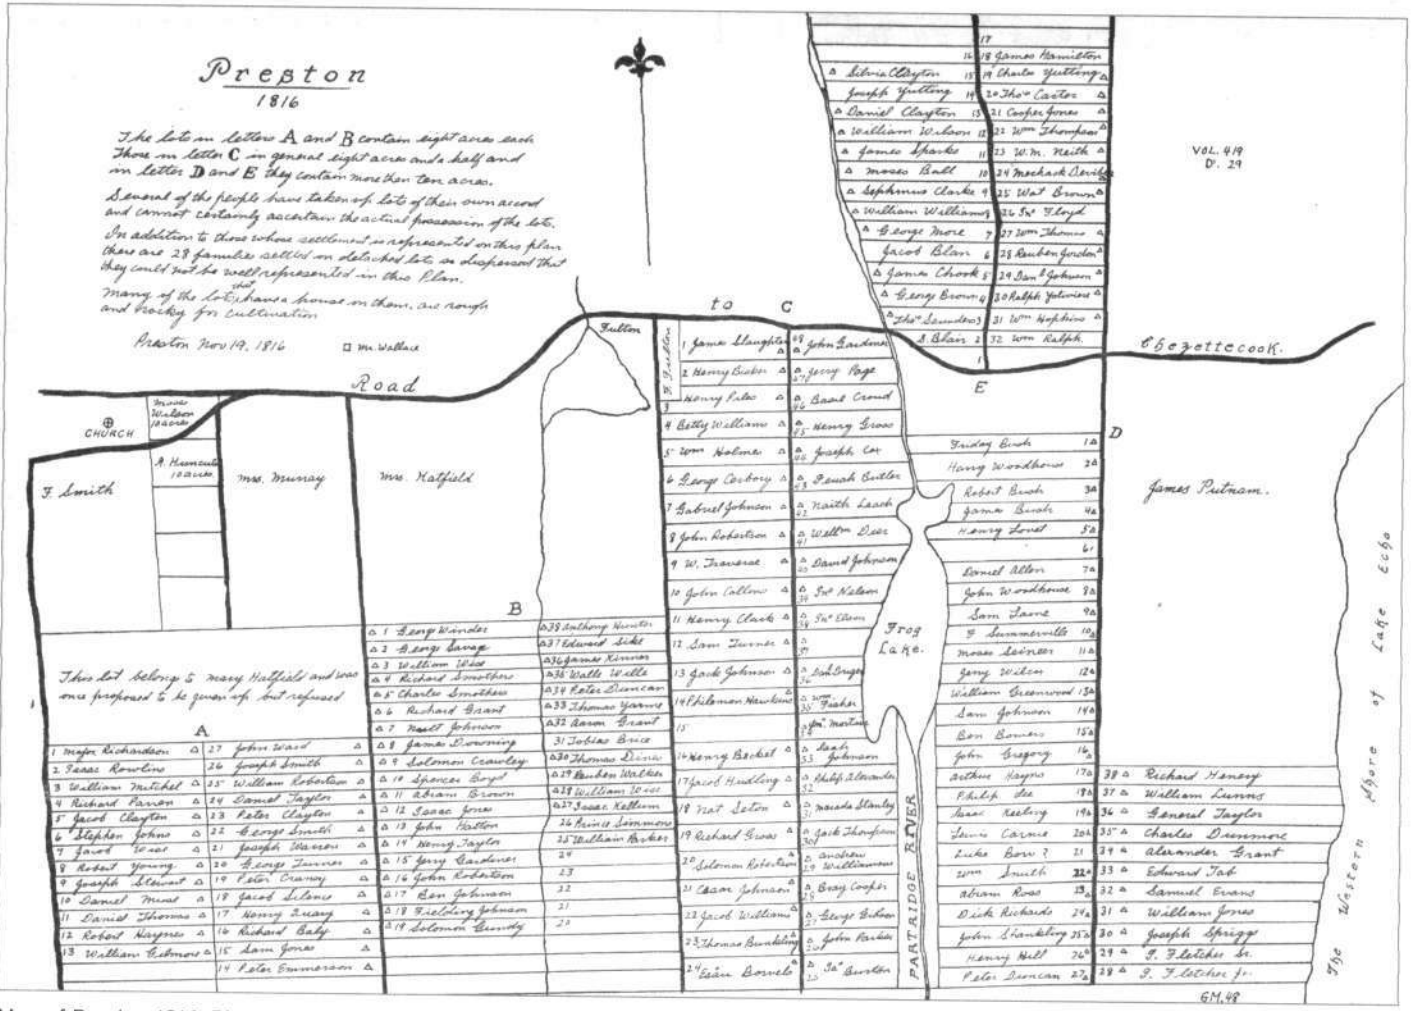 Preston
1816
The lots in letters A and B contain eight acres each
Those in letter C in general eight acres and a half and
in letter D and E they contain more then ten acres.
Several of the people have taken up lots of their own accord
and cannot certainly ascertain the actual possession of the lots.
In addition to those whose settlement is represented on this plan
there are 28 families settled on detached lots so dispersed that
they could not be well represented in this Plan.
Many of the lots that have a house on them, are rough
and rocky for cultivation
Preston Nov 19, 1816
Mr. Wallace
VOL. 419
D. 29
Road
to
Chezettecook.
CHURCH
Moses
Wilson
10 acres
10 acres
F. Smith
Mrs. Murray
Mrs. Hatfield
Fulton
F. Fulton
This lot belongs to Mary Hatfield and was
once proposed to be given up but refused
A
1 Major Richardson
2 Isaac Rowlins
3 William Mitchel
4 Richard
5 Jacob Clayton
6 Stephen Johns
7 Jacob Wise
8 Robert Young
9 Joseph Stewart
10 Daniel
11 Daniel Thomas
12 Robert Haynes
13 William Gilmore
27 John Ward
26 Joseph Smith
25 William Robertson
24 Daniel Taylor
23 Peter Clayton
22 George Smith
21 Joseph Warren
20 George Turner
19 Peter
18 Jacob
17 Henry
16 Richard
15 Sam Jones
14 Peter Emmerson
B
1 George Winder
2 George Savage
3 William Wise
4 Richard Smothers
5 Charles Smothers
6 Richard Grant
7 Johnson
8 James Downing
9 Solomon Crawley
10 Spencer Boyd
11 Abram Brown
12 Isaac Jones
13 John Hatton
14 Henry Taylor
15 Jerry Gardiner
16 John Robertson
17 Ben Johnson
18 Fielding Johnson
19 Solomon Gundy
38 Anthony Hunter
37 Edward Sike
36 James Kinner
35 Walls Wille
34 Peter Duncan
33 Thomas
32 Aaron Grant
31 Tobias Brice
30 Thomas
29 Reuben Walker
28 William Wise
27 Isaac Kellum
26 Prince Simmons
25 William Parker
24
23
22
21
20
C
1 James Slaughter
2 Henry
3 Henry Piles
4 Betty Williams
5 Wm Holmes
6 George Corbory
7 Gabriel Johnson
8 John Robertson
9 W. Traverse
10 John Collons
11 Henry Clark
12 Sam Turner
13 Jack Johnson
14 Philemon Hawkins
15
16 Henry Becket
17 Jacob Hudling
18 Nat Seton
19 Richard Gross
20 Solomon Robertson
21 Cesar Johnson
22 Jacob Williams
23 Thomas Bunkling
24 Esau Bowels
48 John Gardiner
47 Jerry Page
46 Basel Croud
45 Henry Gross
44 Joseph Cox
43 Butler
42 Naith Leach
41 Dier
40 David Johnson
39 Jno Nelson
38
37
36
35 Wm Fisher
34
33 Leah Johnson
32 Philip Alexander
31 Stanley
30 Jack Thompson
29 Andrew Williamson
28 Bray Cooper
27 George Gibson
26 John Parker
25 Jas Burton
17
16
Silvia Clayton 15
Joseph Yutting 14
Daniel Clayton 13
William Wilson 12
James Sparks 11
Moses Ball 10
Sephinus Clarke 9
William Williams 8
George More 7
Jacob Blan 6
James Chook 5
George Brown 4
Thos Saunders 3
S. Blair 2
1
18 James Hamilton
19 Charles Yutting
20 Thos Carter
21 Cooper Jones
22 Wm Thompson
23 W.m. Neith
24
25 Wat Brown
26 Jno Floyd
27 Wm Thomas
28 Reuben Gordon
29 Danl Johnson
30 Ralph
31 Wm Hopkins
32 Wm Ralph
E
D
Friday Bush 1
Harry Woodhouse 2
Robert Bush 3
James Bush 4
Henry Lovet 5
6
Daniel Allen 7
John Woodhouse 8
Sam Laine 9
Summerville 10
Moses 11
Jerry Wilson 12
William Greenwood 13
Sam Johnson 14
Ben Bowers 15
John Gregory 16
Arthur Haynes 17
Philip Lee 18
Isaac Keeling 19
Lewis Carnie 20
Luke Bow? 21
Wm Smith 22
Abram Ross 23
Dick Richards 24
John Shankling 25
Henry Hill 26
Peter Duncan 27
38 Richard Henery
37 William Lunns
36 General Taylor
35 Charles Dunmore
34 Alexander Grant
33 Edward Tab
32 Samuel Evans
31 William Jones
30 Joseph Spriggs
29 T. Fletcher Sr.
28 T. Fletcher Jr.
Frog
Lake.
PARTRIDGE RIVER
James Putnam.
The Western Shore of Lake Echo
GM.48